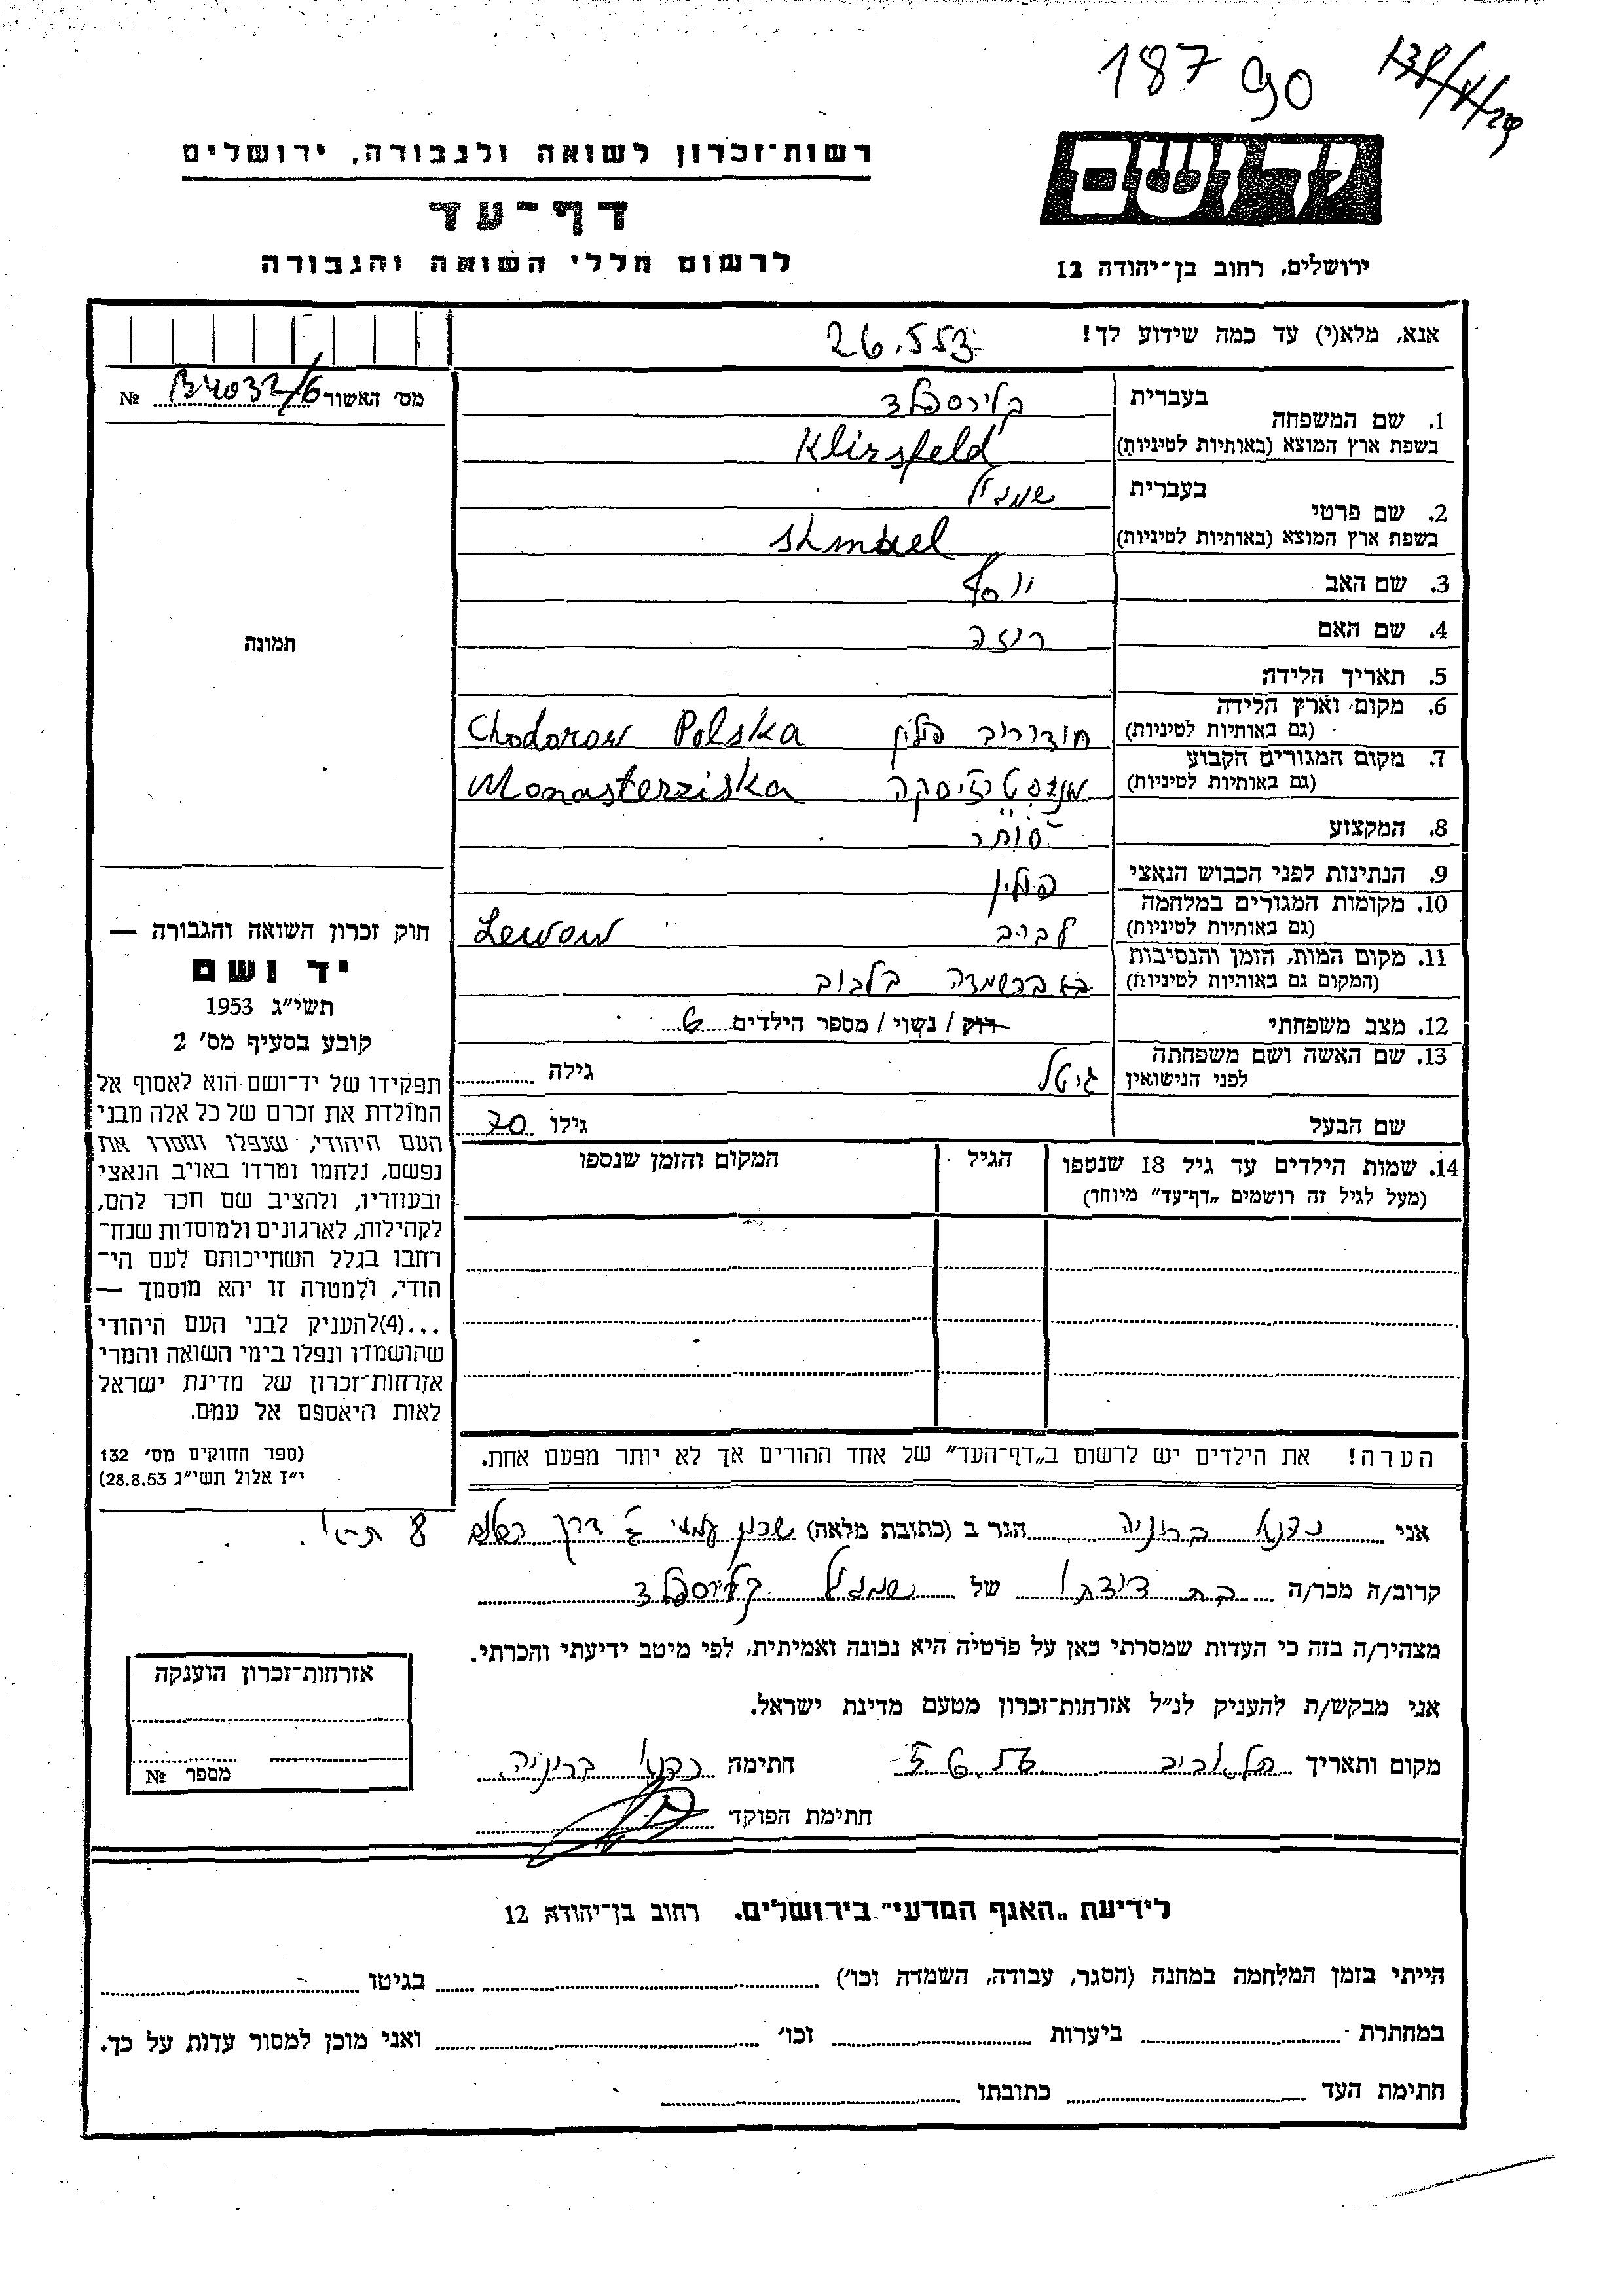 187 90
138/4/29
רשות־זכרון לשואה ולגבורה, ירושלים
דף־עד
לרשום חללי השואה והגבורה
ידושם
ירושלים, רחוב בן־יהודה 12
אנא, מלא(י) עד כמה שידוע לך!
26.5.53
מס׳ האשור B4032/6 №
1. שם המשפחה בעברית קלירספלד
בשפת ארץ המוצא (באותיות לטיניות) Klirsfeld
2. שם פרטי בעברית שמואל
בשפת ארץ המוצא (באותיות לטיניות) Shmuel
3. שם האב יוסף
4. שם האם ריזה
5. תאריך הלידה
6. מקום וארץ הלידה
(גם באותיות לטיניות) חודורוב פולין Chodorow Polska
7. מקום המגורים הקבוע
(גם באותיות לטיניות) מונסטז׳יסקה Monasterziska
8. המקצוע סוחר
9. הנתינות לפני הכבוש הנאצי פולין
10. מקומות המגורים במלחמה
(גם באותיות לטיניות) לבוב Lewow
11. מקום המות, הזמן והנסיבות
(המקום גם באותיות לטיניות) בהשמדה בלבוב
12. מצב משפחתי רוק / נשוי / מספר הילדים 6
13. שם האשה ושם משפחתה
לפני הנישואין גיטל גילה
שם הבעל גילו 70
14. שמות הילדים עד גיל 18 שנספו הגיל המקום והזמן שנספו
(מעל לגיל זה רושמים „דף־עד״ מיוחד)
הערה! את הילדים יש לרשום ב„דף־העד״ של אחד ההורים אך לא יותר מפעם אחת.
תמונה
חוק זכרון השואה והגבורה —
יד ושם
תשי״ג 1953
קובע בסעיף מס׳ 2
תפקידו של יד־ושם הוא לאסוף אל
המולדת את זכרם של כל אלה מבני
העם היהודי, שנפלו ומסרו את
נפשם, נלחמו ומרדו באויב הנאצי
ובעוזריו, ולהציב שם וזכר להם,
לקהילות, לארגונים ולמוסדות שנח־
רחבו בגלל השתייכותם לעם הי־
הודי, ולמטרה זו יהא מוסמך —
...(4)להעניק לבני העם היהודי
שהושמדו ונפלו בימי השואה והמרי
אזרחות־זכרון של מדינת ישראל
לאות היאספם אל עמם.
(ספר החוקים מס׳ 132
י״ז אלול תשי״ג 28.8.53)
אני ברוניה הגר ב (כתובת מלאה) שכון עממי ג׳ דרך השלום 8 ת״א
קרוב/ה מכר/ה בת דודתו של שמואל קלירספלד
מצהיר/ה בזה כי העדות שמסרתי כאן על פרטיה היא נכונה ואמיתית, לפי מיטב ידיעתי והכרתי.
אני מבקש/ת להעניק לנ״ל אזרחות־זכרון מטעם מדינת ישראל.
מקום ותאריך תל־אביב 5.6.57 חתימה ברוניה
חתימת הפוקד
אזרחות־זכרון הוענקה
מספר №
לידיעת „האגף המדעי״ בירושלים. רחוב בן־יהודה 12
הייתי בזמן המלחמה במחנה (הסגר, עבודה, השמדה וכו׳) בגיטו
במחתרת ביערות וכו׳ ואני מוכן למסור עדות על כך.
חתימת העד כתובתו